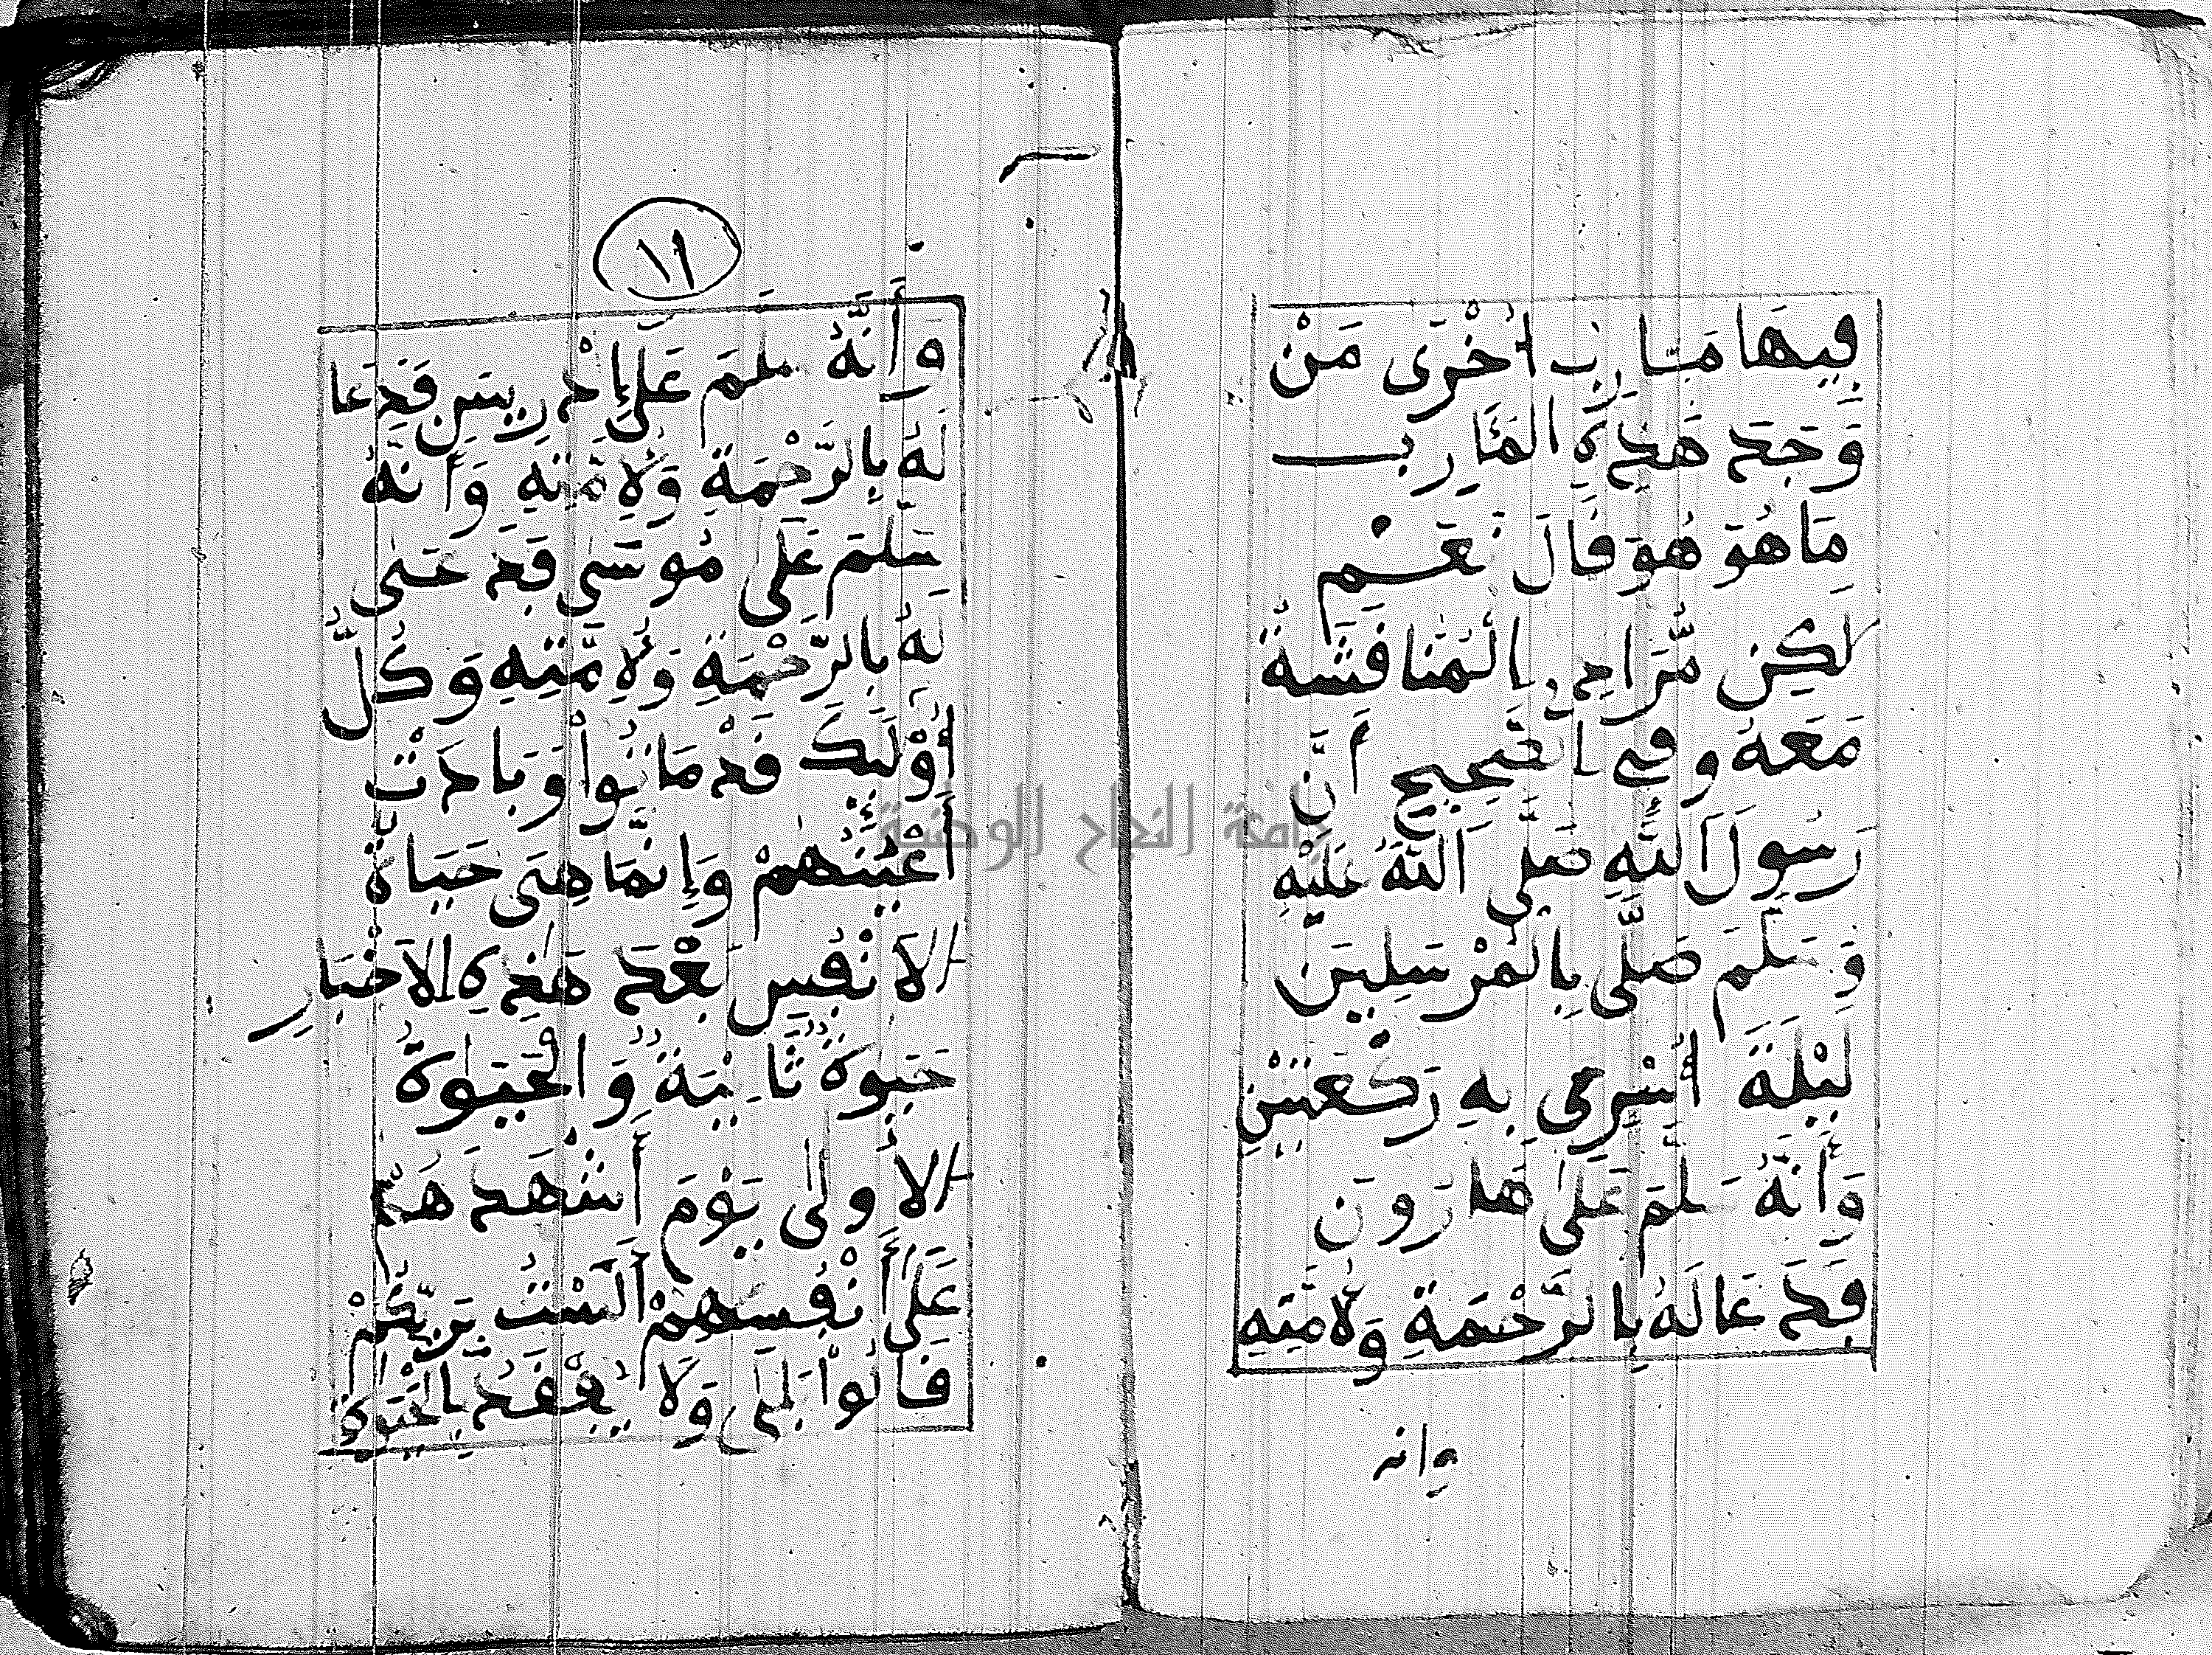 فِيهَا مَـَٔارِبُ أُخْرَى مَنْ
وَجَدَ هَذِهِ الْمَـَٔارِب
مَا هُوَ هُوَ قَالَ نَعَمْ
لَكِن مُّرَادِي الْمُنَافَشَةُ
مَعَهُ وَفِي الصَّحِيحِ أَنَّ
رَسُولَ اللَّهِ صَلَّى اللَّهُ عَلَيْهِ
وَسَلَّمَ صَلَّى بِالْمُرْسَلِينَ
لَيْلَةَ أُسْرِيَ بِهِ رَكْعَتَيْنِ
وَأَنَّهُ سَلَّمَ عَلَى هَارُونَ
فَدَعَا لَهُ بِالرَّحْمَةِ وَلِأُمَّتِهِ
وانه
١١
وَأَنَّهُ سَلَّمَ عَلَى إِدْرِيسَ فَدَعَا
لَهُ بِالرَّحْمَةِ وَلِأُمَّتِهِ وَأَنَّهُ
سَلَّمَ عَلَى مُوسَى فَدَعَى
لَهُ بِالرَّحْمَةِ وَلِأُمَّتِهِ وَكُلُّ
أُوْلَئِكَ قَدْ مَاتُواْ وَبَادَتْ
أَعْيُنُهُمْ وَإِنَّمَا هِيَ حَيَاةُ
الْأَنْفُسِ بَعْدَ هَذِهِ الْأَخْبَارِ
حَيَوٰةٌ ثَانِيَةٌ وَالْحَيَوٰةُ
الْأُولَى يَوْمَ أَشْهَدَهُمْ
عَلَى أَنْفُسِهِمْ أَلَسْتُ بِرَبِّكُمْ
قَالُواْ بَلَى وَلَا يَفْقِدُ بِالْحَيَوٰةِ
جامعة النجاح الوطنية